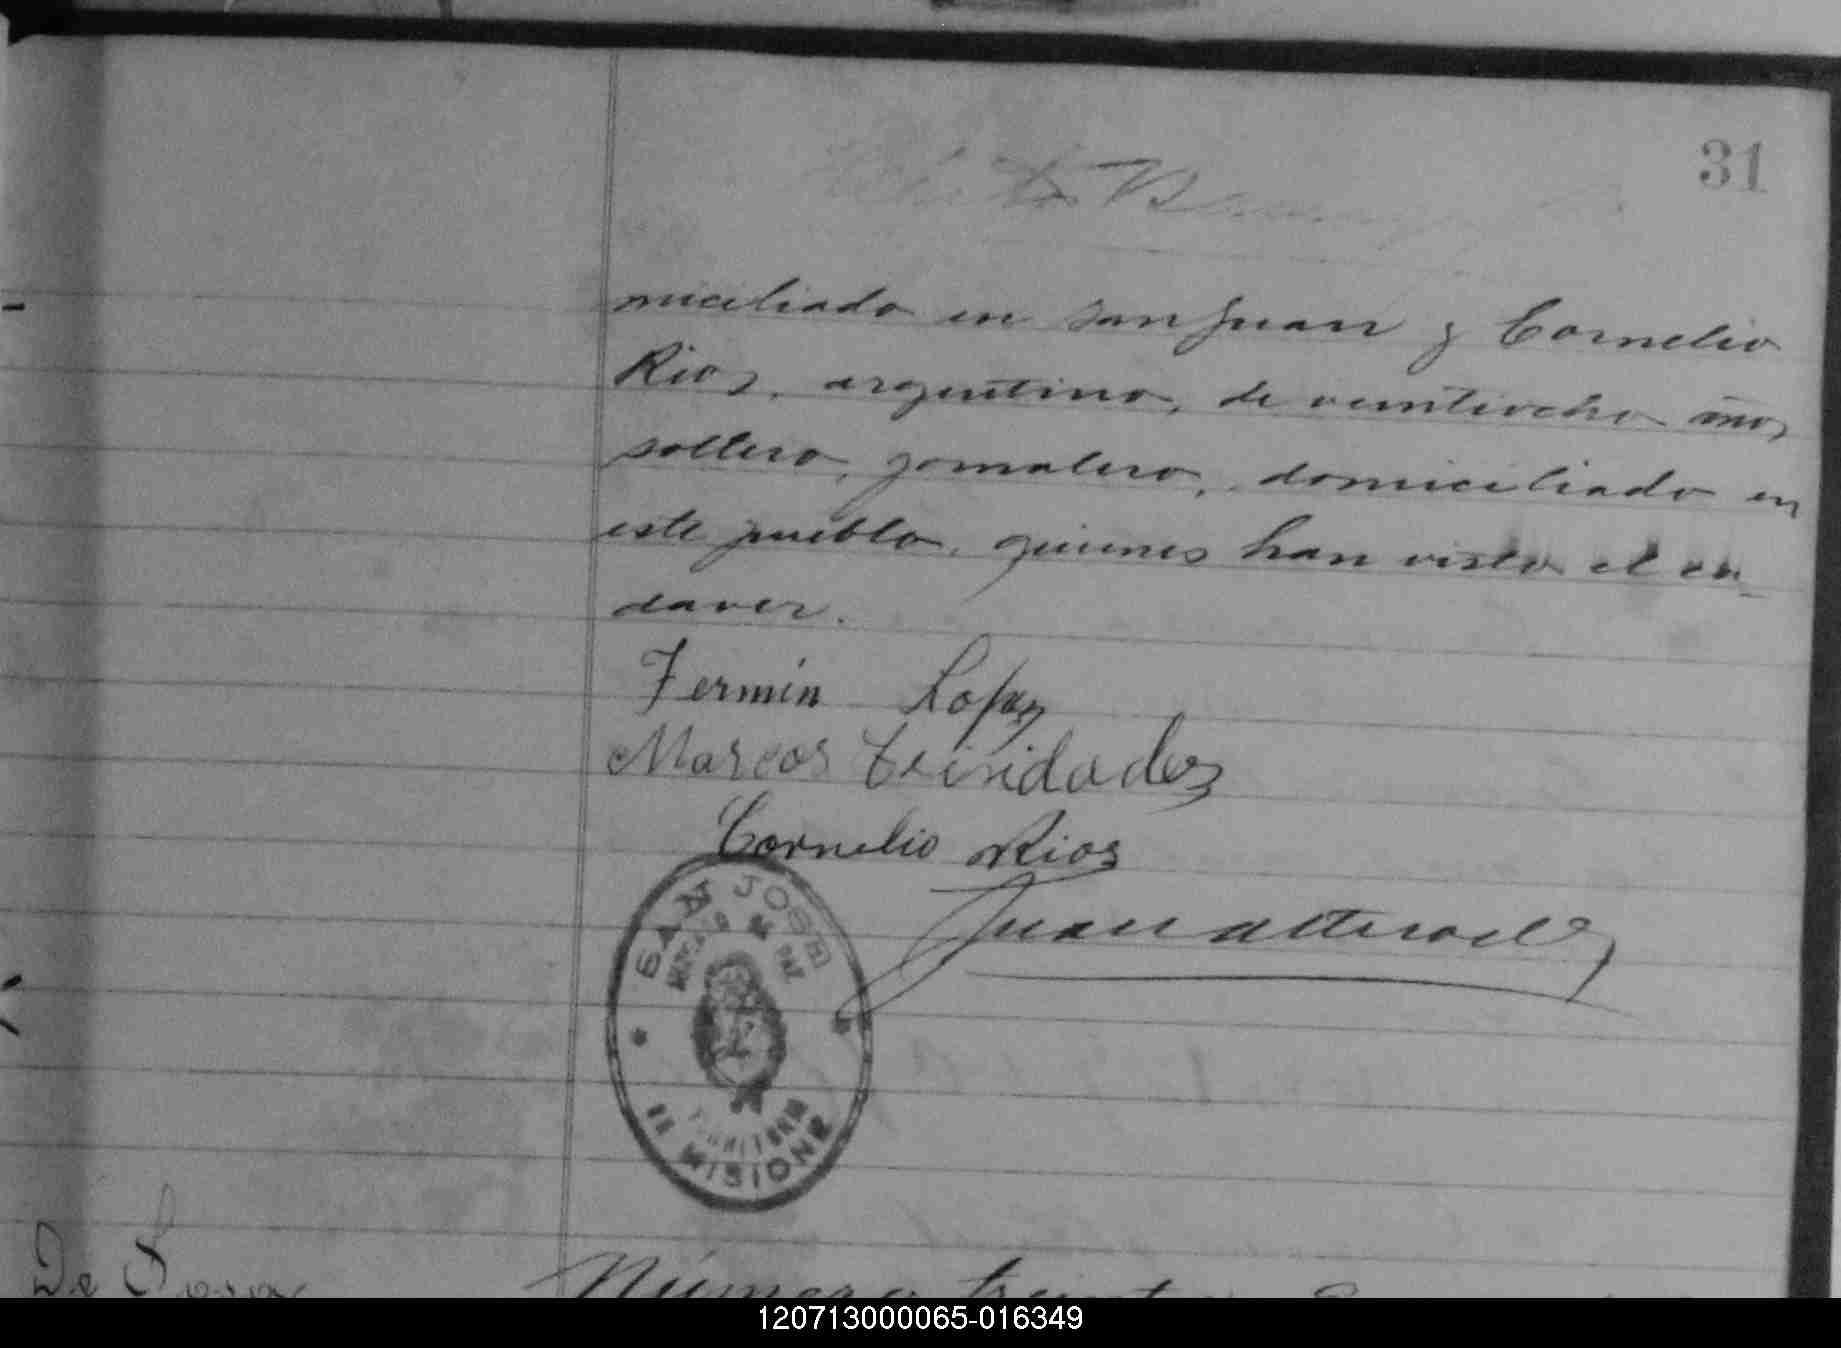 31
miciliado en San Juan y Cornelio
Rios, argentino, de veintiocho años
soltero, jornalero, domiciliado en
este pueblo, quienes han visto el ca-
daver.
Fermin Lopez
Marcos Trinidades
Cornelio Rios
Juan
SAN JOSE
JUZGADO DE PAZ
TERRITORIO
DE MISIONES
De
Número treinta
120713000065-016349